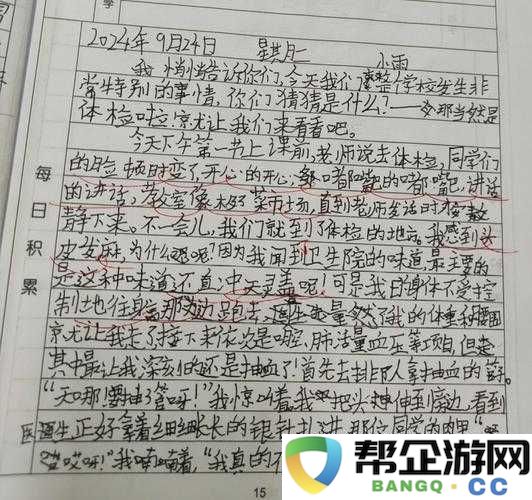 学
2024年9月24日 星期二 小雨
我悄悄告诉你们,今天我们学校发生非
常特别的事情,你们猜猜是什么?——那当然是
体检啦!就让我们来看看吧。
今天下午第一节上课前,老师说去体检,同学们
的脸顿时变了,开心的开心,嘟嘴的嘟嘴,讲话
的讲话,教室像极了菜市场,直到老师发话时才安
静下来。不一会儿,我们就到了体检的地方。我感到头
皮发麻,为什么呢?因为我闻到卫生院的味道,最主要的
是这种味道还直冲天灵盖呢!可是我的身体不受控
制地往前那边跑去,医生量了我的体重和腰围
就让我走了,接下来依次是,肺活量血压等项目,但是
其中最让我深刻的还是抽血了!首先去排队拿抽血的管子。
“天哪!要抽了管呀!”我惊叹着,我把头伸到窗边,看到
医生正好拿着细细长长的银针扎进那位同学的肉里“
哎哎呀!”我喃喃着,“我真的不
每日积累
15
帮企游网
BANGQ·CC